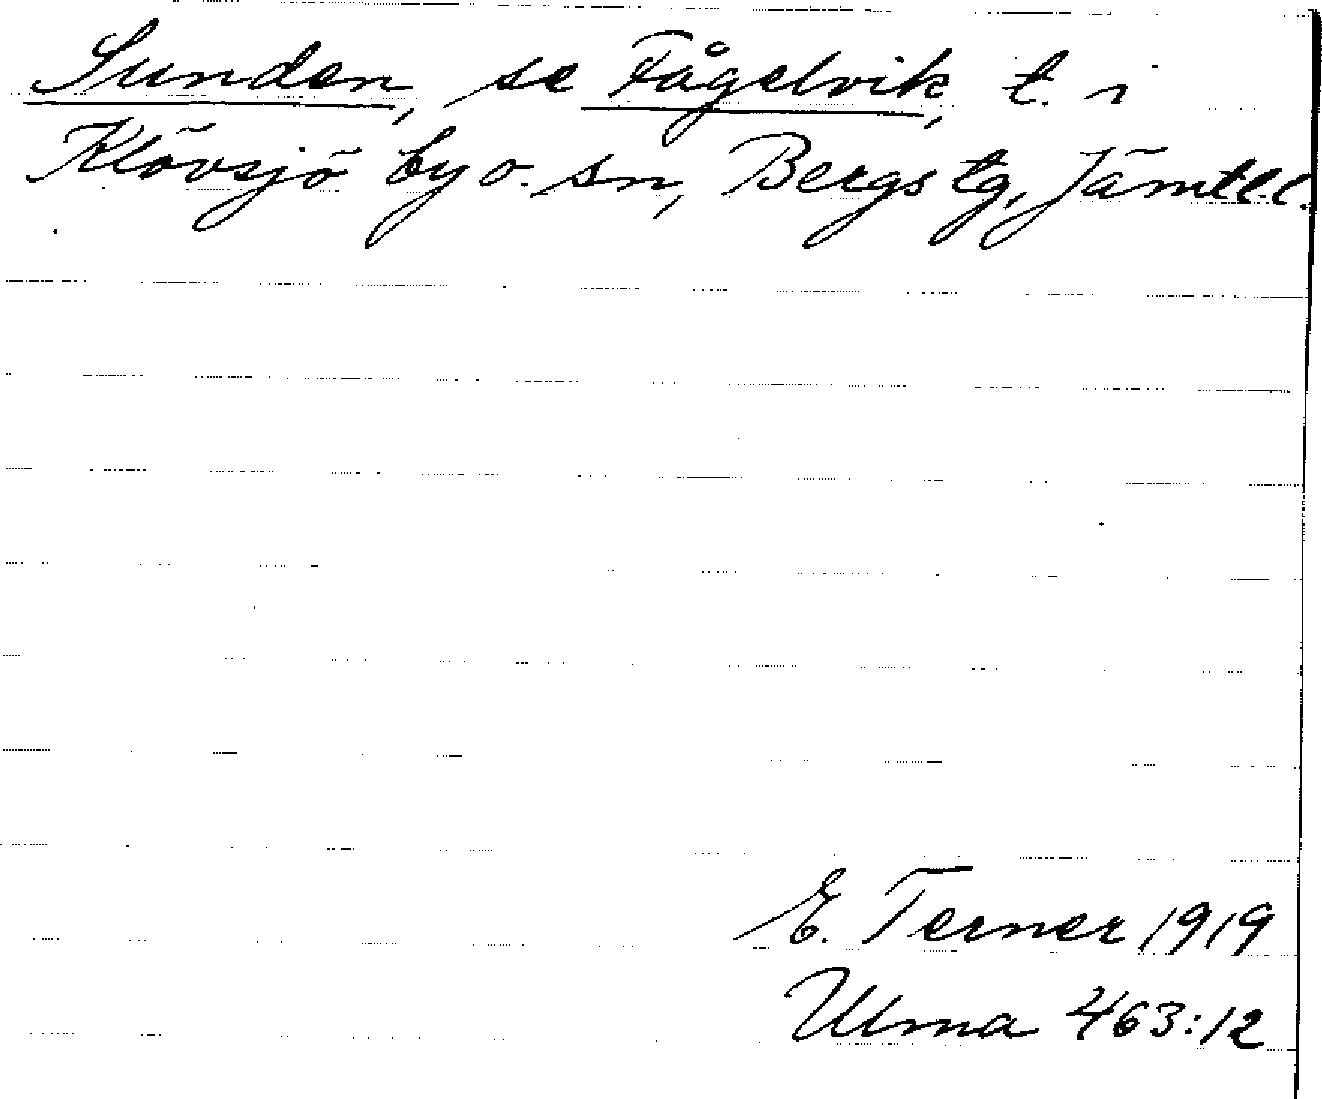 Sunden, se Fågelvik, t. i
Klövsjö by o. sn, Bergs tg, Jämtl.l.
E. Terner 1919
Ulma 463:12